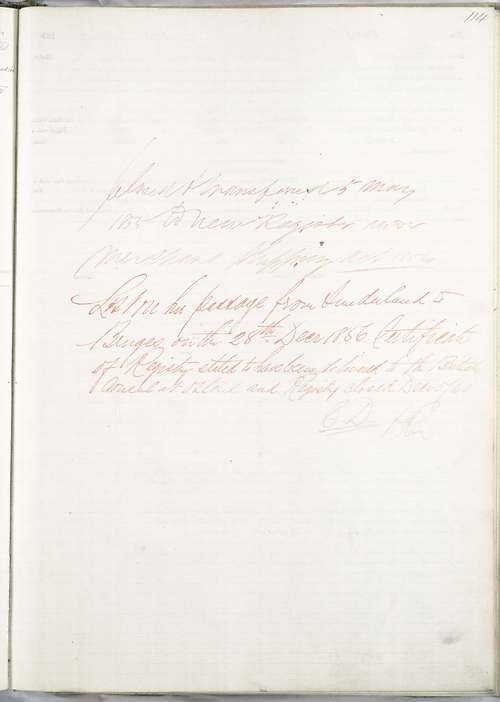 114
Closed & Transferred 5 May
185 to New Register under
Merchant Shipping Act 1854
Lost on her passage from Sunderland to
Bruges on the 28th Decr 1856. Certificate
of Registry stated to have been delivered to the British
Consul at Ostend and Registry closed Decr